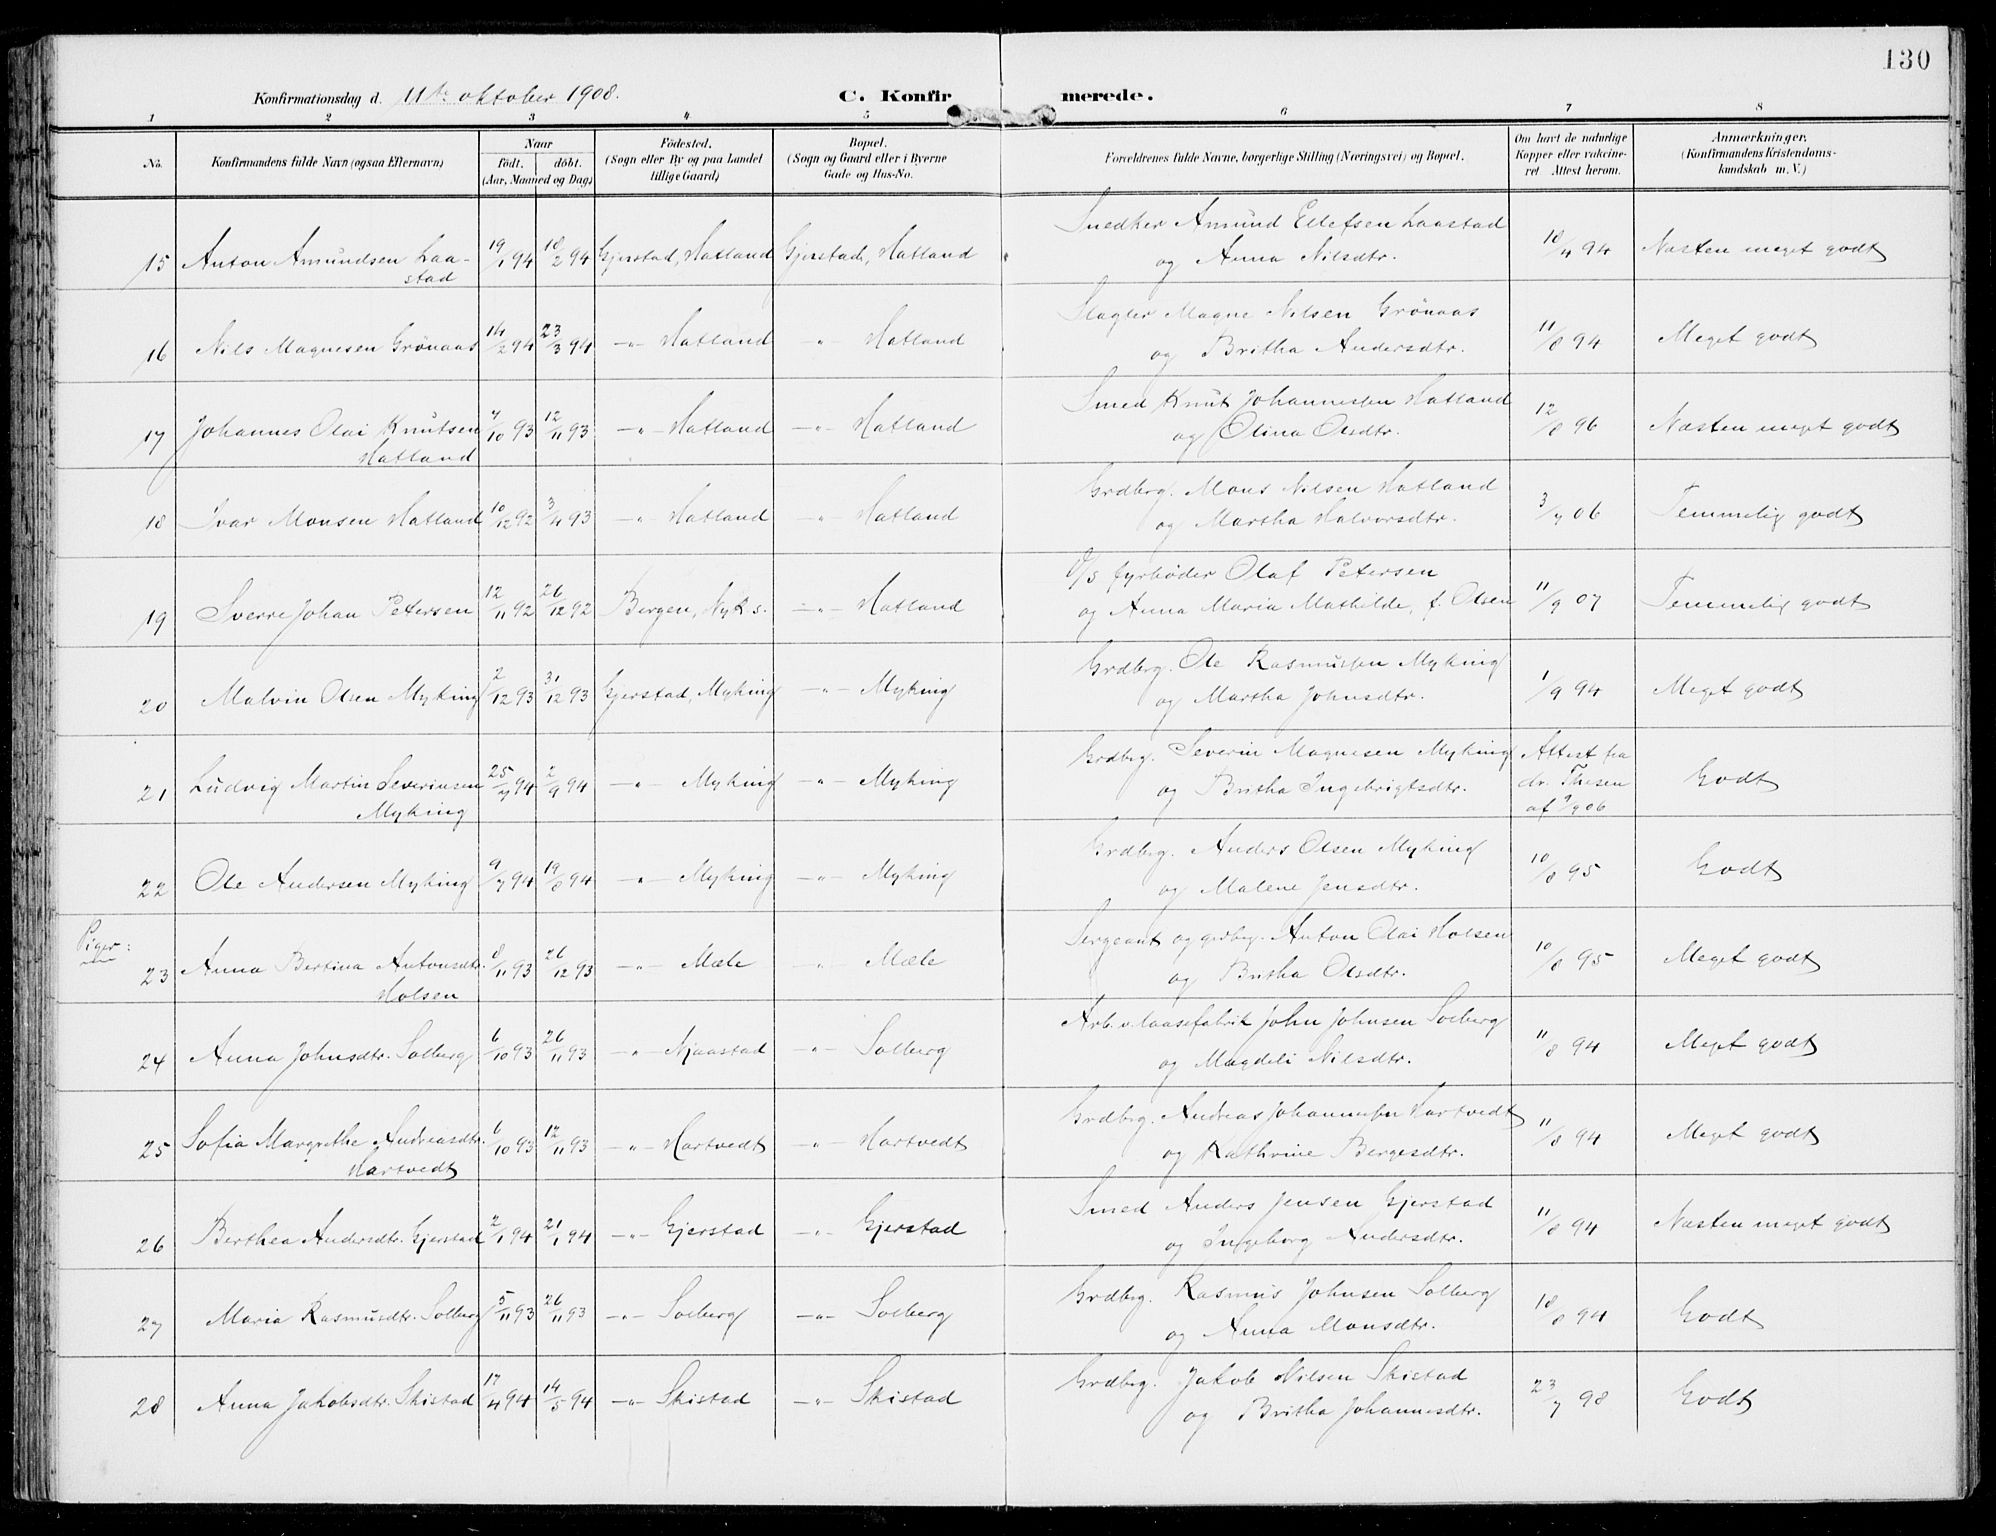 130
Konfirmationsdag d. 11te oktober 1908. C. Konfirmerede.
1 2 3 4 5 6 7 8
No. Konfirmandens fulde Navn (ogsaa Efternavn) Naar födt. döbt. (Aar, Maaned og Dag) Födested. (Sogn eller By og paa Landet tillige Gaard) Bopæl. (Sogn og Gaard eller i Byerne Gade og Hus-No. Forældrenes fulde Navne, borgerlige Stilling (Næringsvei) og Bopæl. Om havt de naturlige Kopper eller vakcineret. Attest herom. Anmærkninger. (Konfirmandens Kristendomskundskab m. V.)
15 Anton Amundsen Laastad 19/1 94 18/2 94 Gjerstad, Hatland Gjerstad, Hatland Snedker Amund Ellefsen Laastad og Anna Nilsdtr. 18/4 94 Næsten meget godt
16 Nils Magnesen Grönaas 14/2 94 23/3 94 -"- Hatland -"- Hatland Slagter Magne Nilsen Grönaas og Britha Andersdtr. 11/8 94 Meget godt
17 Johannes Olai Knutsen Hatland 7/10 93 12/11 93 -"- Hatland -"- Hatland Smed Knut Johannessen Hatland og Olina Olsdtr. 12/8 96 Næsten meget godt
18 Ivar Monsen Hatland 10/12 92 3/4 93 -"- Hatland -"- Hatland Grdbrg. Mons Nilsen Hatland og Martha Halvorsdtr. 3/7 06 Temmelig godt
19 Sverre Johan Petersen 12/11 92 26/12 92 Bergen, Nyk s. -"- Hatland D/S fyrbøder Olaf Petersen og Anna Maria Mathilde, f. Olsen 11/9 07 Temmelig godt
20 Malvin Olsen Myking 2/12 93 31/12 93 Gjerstad, Myking -"- Myking Grdbrg. Ole Rasmussen Myking og Martha Johnsdtr. 1/9 94 Meget godt
21 Ludvig Martin Severinsen Myking 25/7 94 2/9 94 -"- Myking -"- Myking Grdbrg. Severin Magnesen Myking og Britha Ingebrigtsdtr. Attest fra dr. Thesen af 9/9 06 Godt
22 Ole Andersen Myking 9/7 94 19/8 94 -"- Myking -"- Myking Grdbrg. Anders Olsen Myking og Malene Jensdtr. 10/8 95 Godt
Piger:
23 Anna Bertina Antonsdtr. Holsen 8/11 93 26/12 93 -"- Mæle -"- Mæle Sergeant og grdbrg. Anton Olai Holsen og Britha Olsdtr. 10/8 95 Meget godt
24 Anna Johnsdtr. Solberg 6/10 93 26/11 93 -"- Njaastad -"- Solberg Arb. v. laasefabrik John Johnsen Solberg og Magdeli Nilsdtr. 11/8 94 Meget godt
25 Sofia Margrethe Andreasdtr. Hartvedt 6/10 93 12/11 93 -"- Hartvedt -"- Hartvedt Grdbrg. Andreas Johannessen Hartvedt og Kathrine Bergesdtr. 11/8 94 Meget godt
26 Berthea Andersdtr. Gjerstad 2/1 94 21/1 94 -"- Gjerstad -"- Gjerstad Smed Anders Jensen Gjerstad og Ingeborg Andersdtr. 11/8 94 Næsten meget godt
27 Maria Rasmusdtr. Solberg 5/11 93 26/11 93 -"- Solberg -"- Solberg Grdbrg. Rasmus Johnsen Solberg og Anna Monsdtr. 18/8 94 Godt
28 Anna Jakobsdtr. Skistad 17/4 94 14/5 94 -"- Skistad -"- Skistad Grdbrg. Jakob Nilsen Skistad og Britha Johannesdtr. 23/7 98 Godt